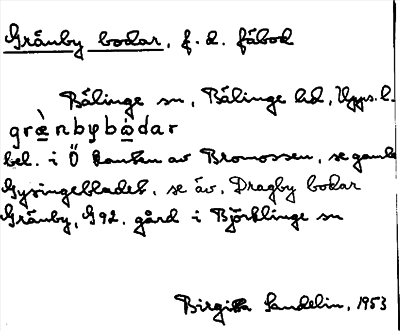 Gränby bodar, f. d. fäbod
Bälinge sn, Bälinge hd, Upps. l.
græ̀nbybωdar
bel. i Ö kanten av Bromossen, se gamla
Gysingebladet, se äv. Dragby bodar
Gränby, G 92, gård i Björklinge sn
Birgitta Sandelin, 1953